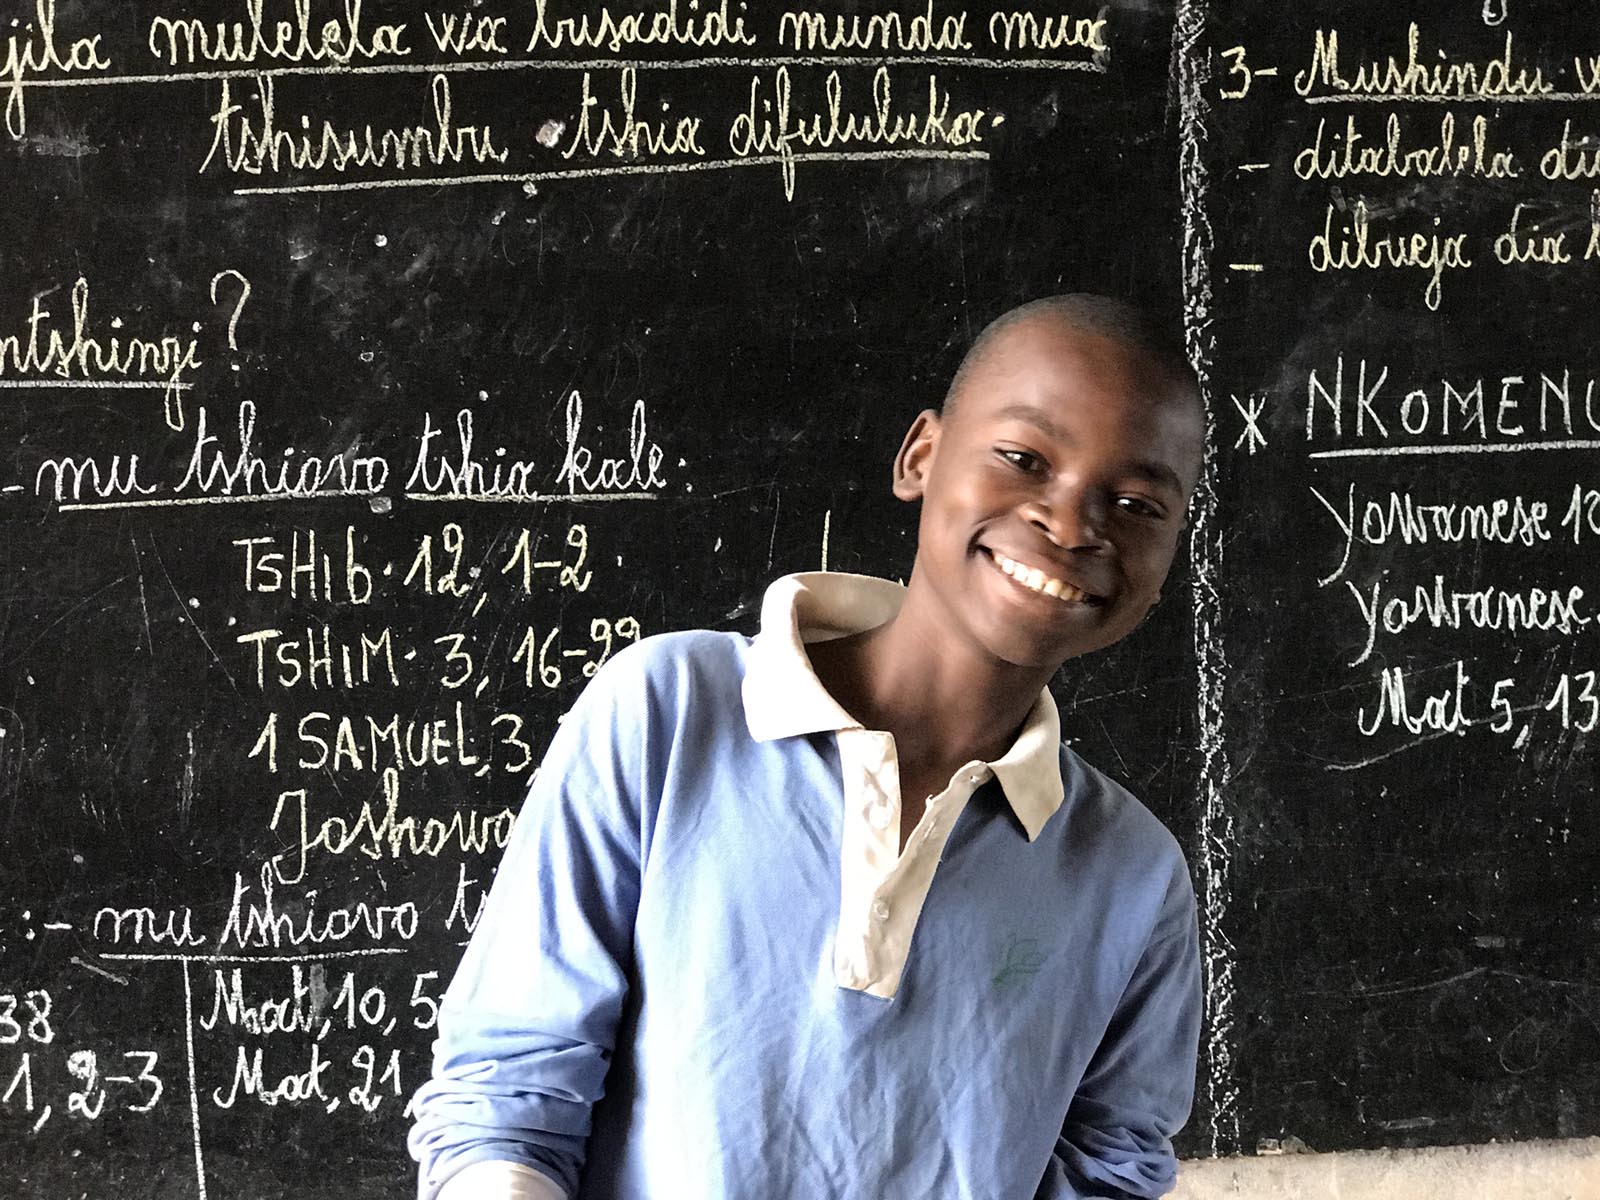 jila mulelela wa busadidi munda mua
tshisumbu tshia difululuka.
ntshinyi?
- mu tshiovo tshia kale:
TSHIb. 12, 1-2
TSHIM. 3, 16-22
1 SAMUEL, 3,
Joshowa
:- mu tshiovo
38
1, 2-3
Mat, 10, 5
Mat, 21,
3- Mushindu
- ditabalela
- dibueja dia
* NKOMENU
Yowanese
Yowanese.
Mat 5, 13